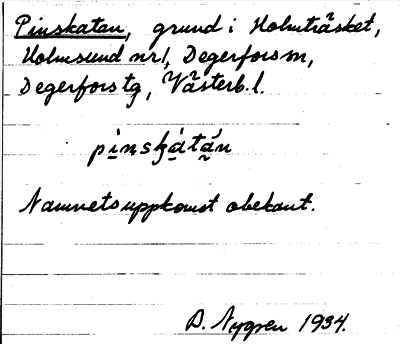 Pinskatan, grund i Holmträsket,
Holmsund nr 1, Degerforsm,
Degerfors tg, Västerb. l.
pìnskátán
Namnets uppkomst obekant.
D. Nygren 1934.